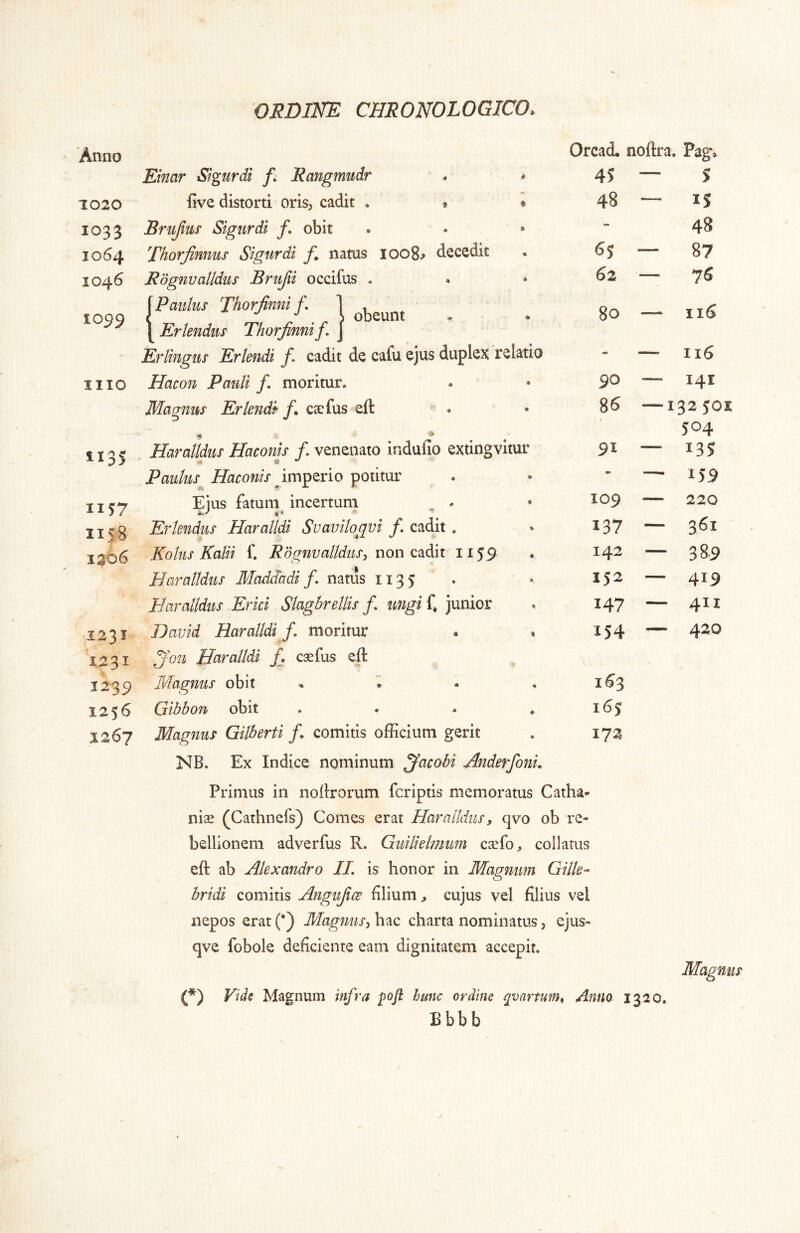 ORDINE CHRONOLOGICO.
Anno Orcad. noſtra. Pag.
Einar Sigurdi f. Rangmudr . . 45 — 5
1020 ſive distorti oris, cadit . . . 48 — 15
1033 Bruſius Sigurdi f. obit . . . - 48
1064 Thorfinnus Sigurdi f. natus 1008, decedit . 65 — 87
1046 Rögnvalldus Bruſii occiſus . . . 62 — 76
1099 { Paulus Thorfinni f. Erlendus Thorfinni f. } obeunt . . 80 — 116
Erlingus Erlendi f. cadit de caſu ejus duplex relatio - — 116
1110 Hacon Pauli f. moritur. . . 90 — 141
Magnus Erlendi f. cæſus eſt . . 86 — 132 501
504
1135 Haralldus Haconis f. venenato induſio extingvitur 91 — 135
Paulus Haconis imperio potitur . . - — 159
1157 Ejus fatum incertum . . 109 — 220
1158 Erlendus Haralldi Svaviloqvi f. cadit . . 137 — 361
1206 Kolus Kalii f. Rögnvalldus, non cadit 1159 . 142 — 389
Haralldus Maddadi f. natus 1135 . . 152 — 419
Haralldus Erici Slagbrellis f. ungi f. junior . 147 — 411
1231 David Haralldi f. moritur . . 154 — 420
1231 Jon Haralldi f. cæſus eſt
1239 Magnus obit . . . . 163
1256 Gibbon obit . . . . 165
1267 Magnus Gilberti f. comitis officium gerit . 172
NB. Ex Indice nominum Jacobi Anderſoni.
Primus in noſtrorum ſcriptis memoratus Catha-
niæ (Cathneſs) Comes erat Haralldus, qvo ob re-
bellionem adverſus R. Guilielmum cæſo, collatus
eſt ab Alexandro II. is honor in Magnum Gille-
bridi comitis Anguſiæ filium, cujus vel filius vel
nepos erat (*) Magnus, hac charta nominatus, ejus-
qve ſobole deficiente eam dignitatem accepit.
Magnus
(*) Vide Magnum infra poſt hunc ordine qvartum, Anno 1320.
Bbbb